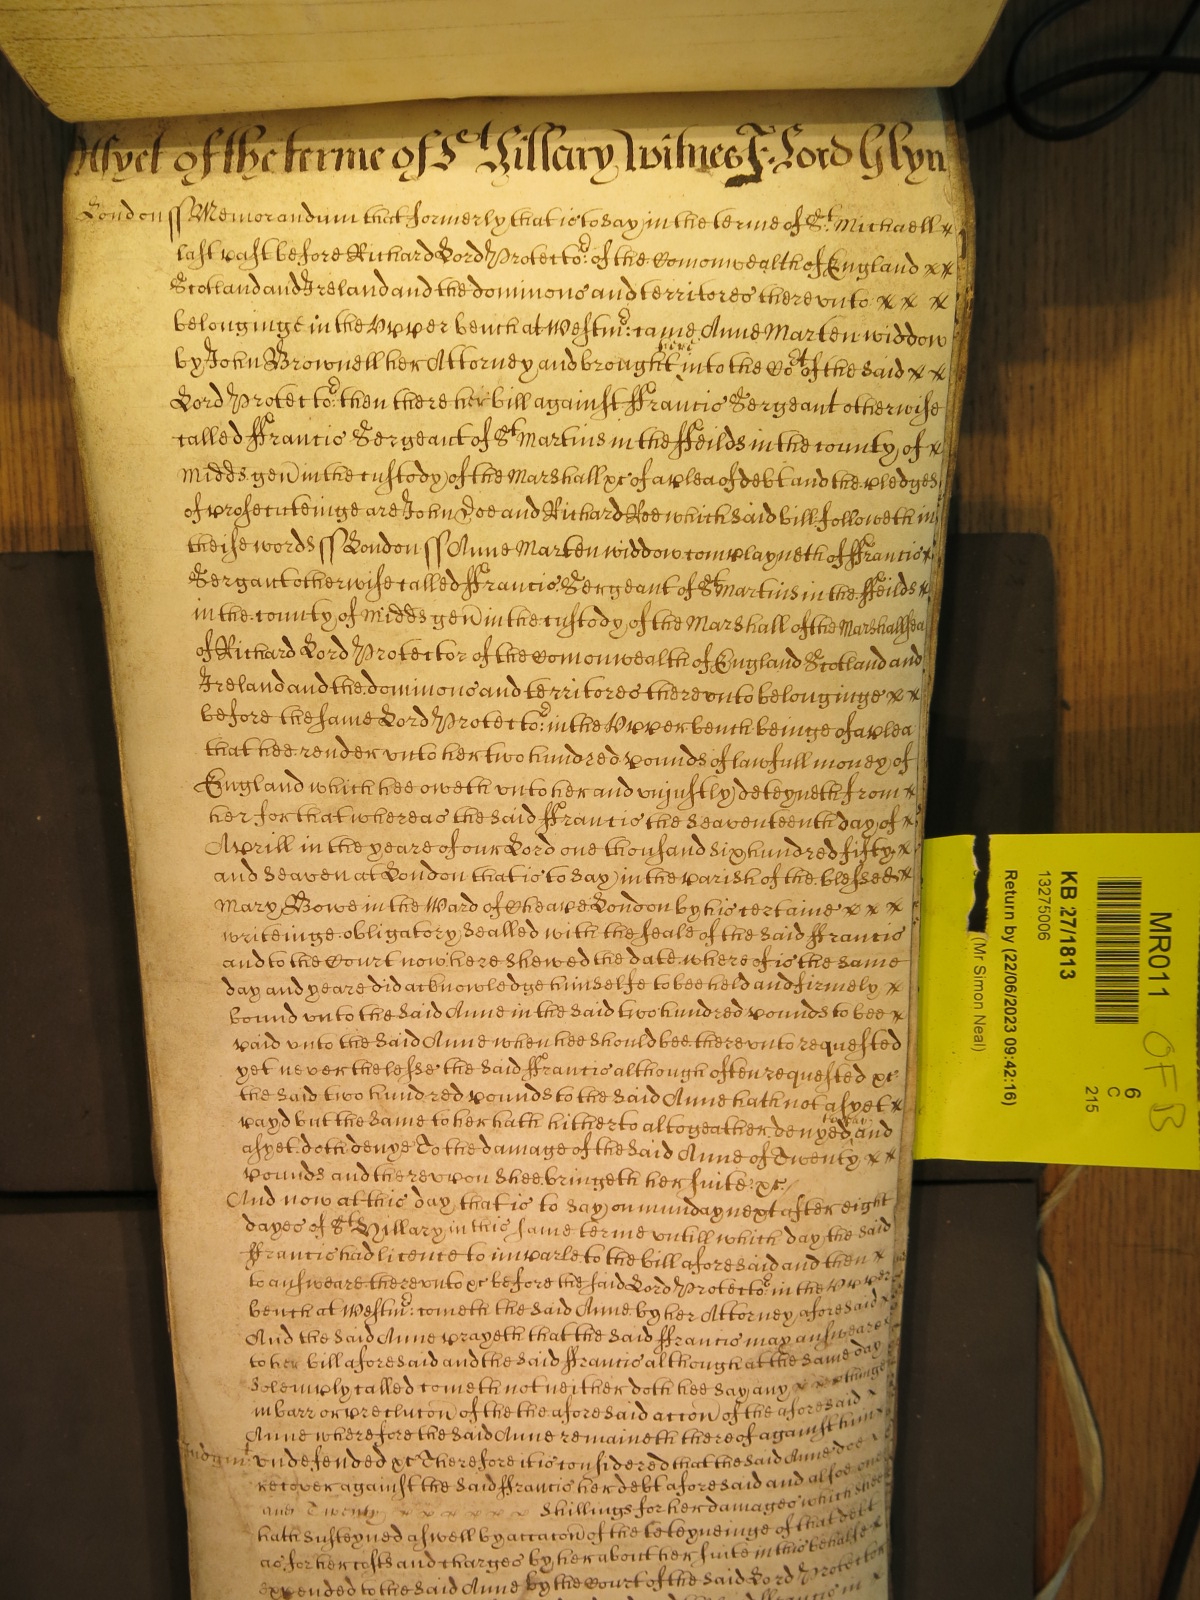 Asyet of the terme of St Hillary Witnes J: Lord Glyn
London ss Memorandum that formerly that is to say in the terme of St: Michaell x
last past before Richard Lord Protector: of the Comonwealth of England x x
Scotland and Ireland and the dominons and territores therevnto x x x
belonginge in the Vpper bench at Westmr: came Anne Marten widdow
by John Brownell her Attorney and brought into the Cort of the said x x
Lord Protector: then there her bill against Francis Sergeant otherwise
called Francis Sergeant of St Martins in the Feilds in the county of x
Midds gen in the custody of the Marshall &c of a plea of debt and the pledges
of prosecuteinge are John Doe and Richard Roe which said bill followeth in
theise words ss London ss Anne Marten widdow complayneth of Francis x
Sergant otherwise called Francis Sergeant of St Martins in the Feilds x
in the county of Midds gen in the custody of the Marshall of the Marshallsea
of Richard Lord Protector of the Comonwealth of England Scotland and
Ireland and the dominons and territores therevnto belonginge x x
before the same Lord Protector: in the Vpper bench beinge of a plea
that hee render vnto her two hundred pounds of lawfull money of
England which hee oweth vnto her and vniustly deteyneth from x
her for that whereas the said Francis the seaventeenth day of x
Aprill in the yeare of our Lord one thousand six hundred fifty x
and seaven at London that is to say in the parish of the blessed x
Mary Bowe in the Ward of Cheape London by his certaine x x x
writeinge obligatory sealled with the seale of the said Francis
and to the Court now here shewed the date where of is the same
day and yeare did acknowledge himselfe to bee held and firmely x
bound vnto the said Anne in the said two hundred pounds to bee x
paid vnto the said Anne when hee should bee therevnto requested
yet neverthelesse the said Francis although often requested &c
the said two hundred pounds to the said Anne hath not asyet x
payd but the same to her hath hitherto altogeather denyed and
asyet doth denye To the damage of the said Anne of Twenty x x
pounds and therevpon shee bringeth her suite &c
And now at this day that is to say on munday next after eight
dayes of St Hillary in this same terme vntill which day the said
Francis had licence to imparle to the bill aforesaid and then x
to answeare therevnto &c before the said Lord Protector: in the Vpper
bench at Westmr: cometh the said Anne by her Attorney aforesaid x
And the said Anne prayeth that the said Francis may answeare
to her bill aforesaid and the said Francis although at the same day
solemply called cometh not neither doth hee say any x x x thinge
in barr or preclucon of the the aforesaid accon of the aforesaid x
Anne wherefore the said Anne remaineth thereof against him x
Judgmt: vndefended &c Therefore it is considered that the said Anne doe x
recover against the said Francis her debt aforesaid and alsoe one
and Twenty x x x x x x shillings for her damages which shee
hath susteyned aswell by occacon of the deteyneinge of that debt
as for her costs and charges by her about her suite in this behalfe x
expended to the said Anne by the Court of the said Lord Protector
MR011
6
C
215
OFB
KB 27/1813
13275006
Return by (22/06/2023 09:42:16)
(Mr Simon Neal)